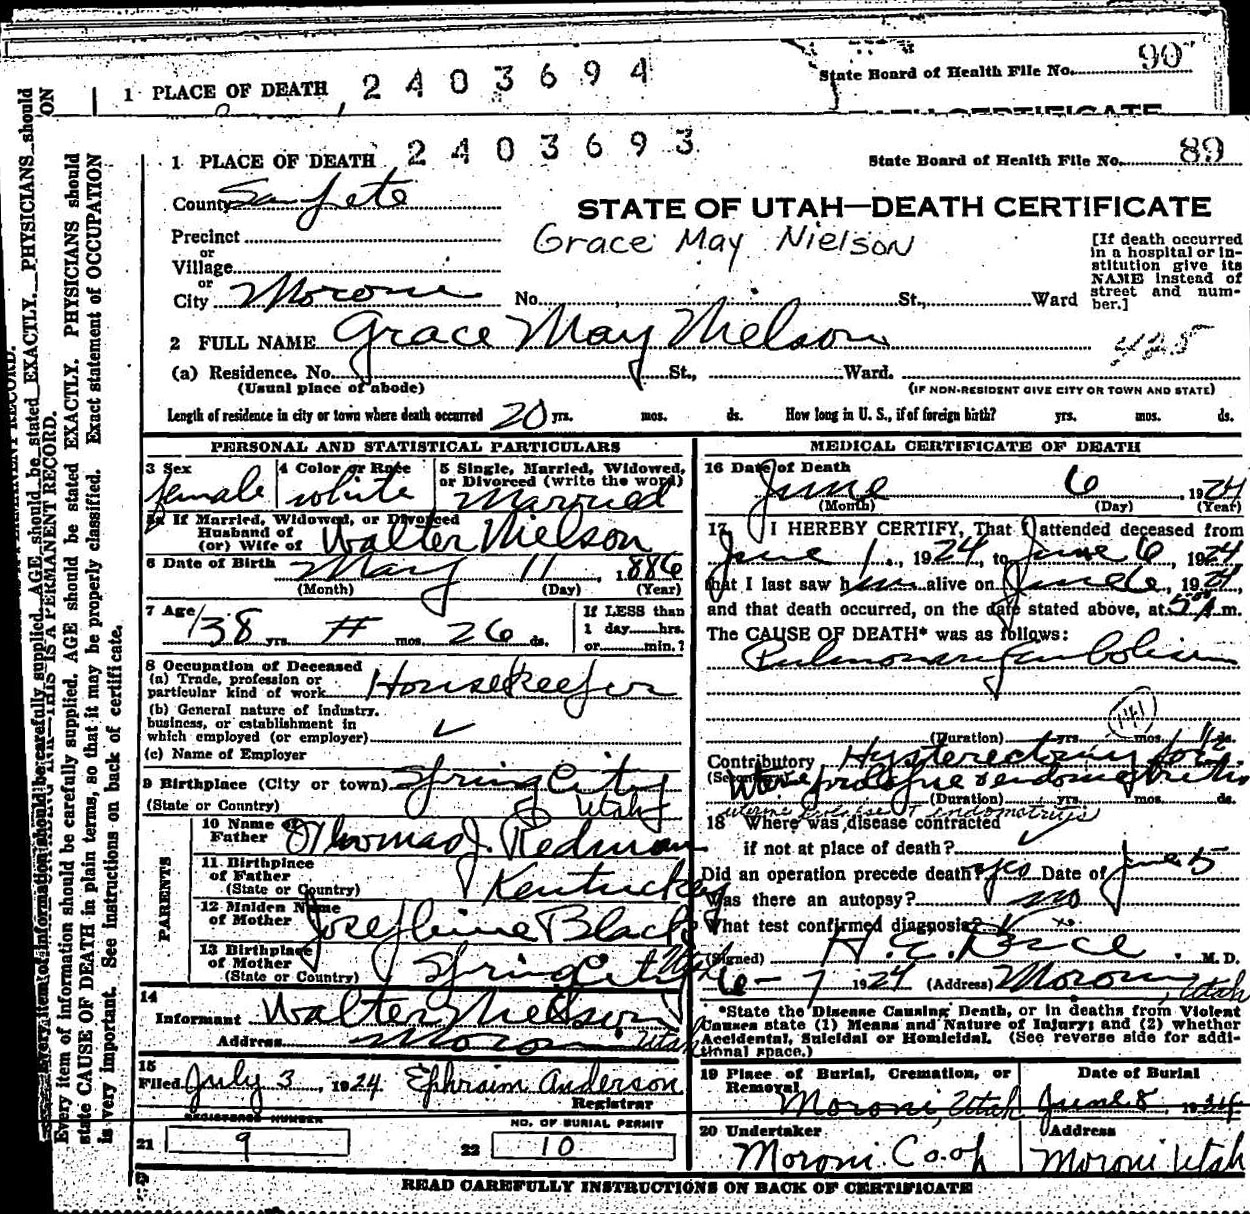 1 PLACE OF DEATH 2403694
State Board of Health File No. 90
1 PLACE OF DEATH 2403693
State Board of Health File No. 89
County Sanpete
STATE OF UTAH—DEATH CERTIFICATE
Precinct
Grace May Nielson
or
Village
or
City Moroni No. St., Ward
[If death occurred
in a hospital or in-
stitution give its
NAME instead of
street and num-
ber.]
2 FULL NAME Grace May Nielson
425
(a) Residence. No. St., Ward.
(Usual place of abode) (IF NON-RESIDENT GIVE CITY OR TOWN AND STATE)
Length of residence in city or town where death occurred 20 yrs. mos. ds. How long in U. S., if of foreign birth? yrs. mos. ds.
PERSONAL AND STATISTICAL PARTICULARS
3 Sex female
4 Color or Race white
5 Single, Married, Widowed,
or Divorced (write the word)
Married
5a If Married, Widowed, or Divorced
Husband of
(or) Wife of Walter Nielson
6 Date of Birth May 11, 1886
(Month) (Day) (Year)
7 Age 38 yrs. mos. 26 ds.
If LESS than
1 day hrs.
or min.?
8 Occupation of Deceased
(a) Trade, profession or
particular kind of work Housekeeper
(b) General nature of industry.
business, or establishment in
which employed (or employer) ✓
(c) Name of Employer
9 Birthplace (City or town) Spring City
(State or Country) Utah
PARENTS
10 Name of
Father Thomas J. Redman
11 Birthplace
of Father
(State or Country) Kentucky
12 Maiden Name
of Mother Josephine Black
13 Birthplace
of Mother
(State or Country) Spring City Utah
14
Informant Walter Nielson
Address Moroni Utah
15
Filed July 3, 1924 Ephraim Anderson
Registrar
REGISTERED NUMBER
21 9
NO. OF BURIAL PERMIT
22 10
MEDICAL CERTIFICATE OF DEATH
16 Date of Death
June 6, 1924
(Month) (Day) (Year)
17 I HEREBY CERTIFY, That I attended deceased from
June 1, 1924, to June 6, 1924,
that I last saw h alive on June 6, 1924,
and that death occurred, on the date stated above, at 5 A.m.
The CAUSE OF DEATH* was as follows:
Pulmonary Embolism
141
(Duration) yrs. mos. ds.
Contributory Hysterectomy for
(Secondary) Uterine prolapse & endometritis
(Duration) yrs. mos. ds.
uterine prolapse & endometritis
18 Where was disease contracted
if not at place of death? ✓
Did an operation precede death? yes Date of June 5
Was there an autopsy? no
What test confirmed diagnosis?
(Signed) M. D.
6-7 1924 (Address) Moroni, Utah
*State the Disease Causing Death, or in deaths from Violent
Causes state (1) Means and Nature of Injury; and (2) whether
Accidental, Suicidal or Homicidal. (See reverse side for addi-
tional space.)
19 Place of Burial, Cremation, or
Removal
Moroni, Utah
Date of Burial
June 8, 1924
20 Undertaker
Moroni Co op
Address
Moroni Utah
READ CAREFULLY INSTRUCTIONS ON BACK OF CERTIFICATE
Every item of information should be carefully supplied. AGE should be stated EXACTLY. PHYSICIANS should
state CAUSE OF DEATH in plain terms, so that it may be properly classified. Exact statement of OCCUPATION
is very important. See instructions on back of certificate.